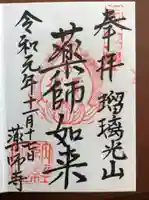 奉拝
瑠璃光山
薬師如来
令和元年十一月十七日
薬師寺